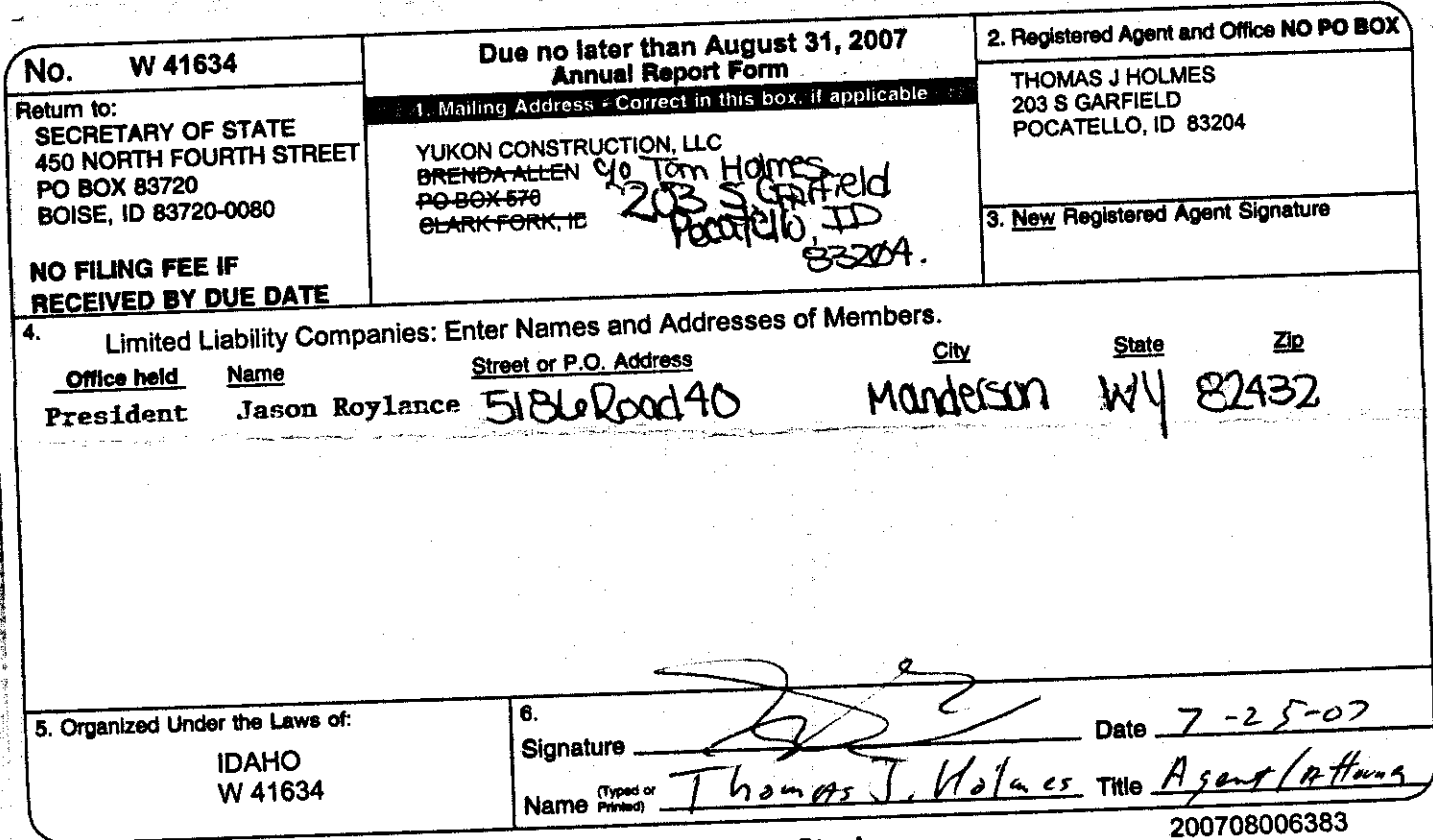 No. W 41634
Return to:
SECRETARY OF STATE
450 NORTH FOURTH STREET
PO BOX 83720
BOISE, ID 83720-0080
NO FILING FEE IF
RECEIVED BY DUE DATE
Due no later than August 31, 2007
Annual Report Form
1. Mailing Address - Correct in this box, if applicable
YUKON CONSTRUCTION, LLC
BRENDA ALLEN c/o Tom Holmes
PO BOX 570 203 S. Garfield
CLARK FORK, ID Pocatello, ID
83204.
2. Registered Agent and Office NO PO BOX
THOMAS J HOLMES
203 S GARFIELD
POCATELLO, ID 83204
3. New Registered Agent Signature
4. Limited Liability Companies: Enter Names and Addresses of Members.
Office held Name Street or P.O. Address City State Zip
President Jason Roylance 5186 Road 40 Manderson WY 82432
5. Organized Under the Laws of:
IDAHO
W 41634
6.
Signature Date 7-25-07
Name (Typed or Printed) Thomas J. Holmes Title Agent/Attorney
200708006383